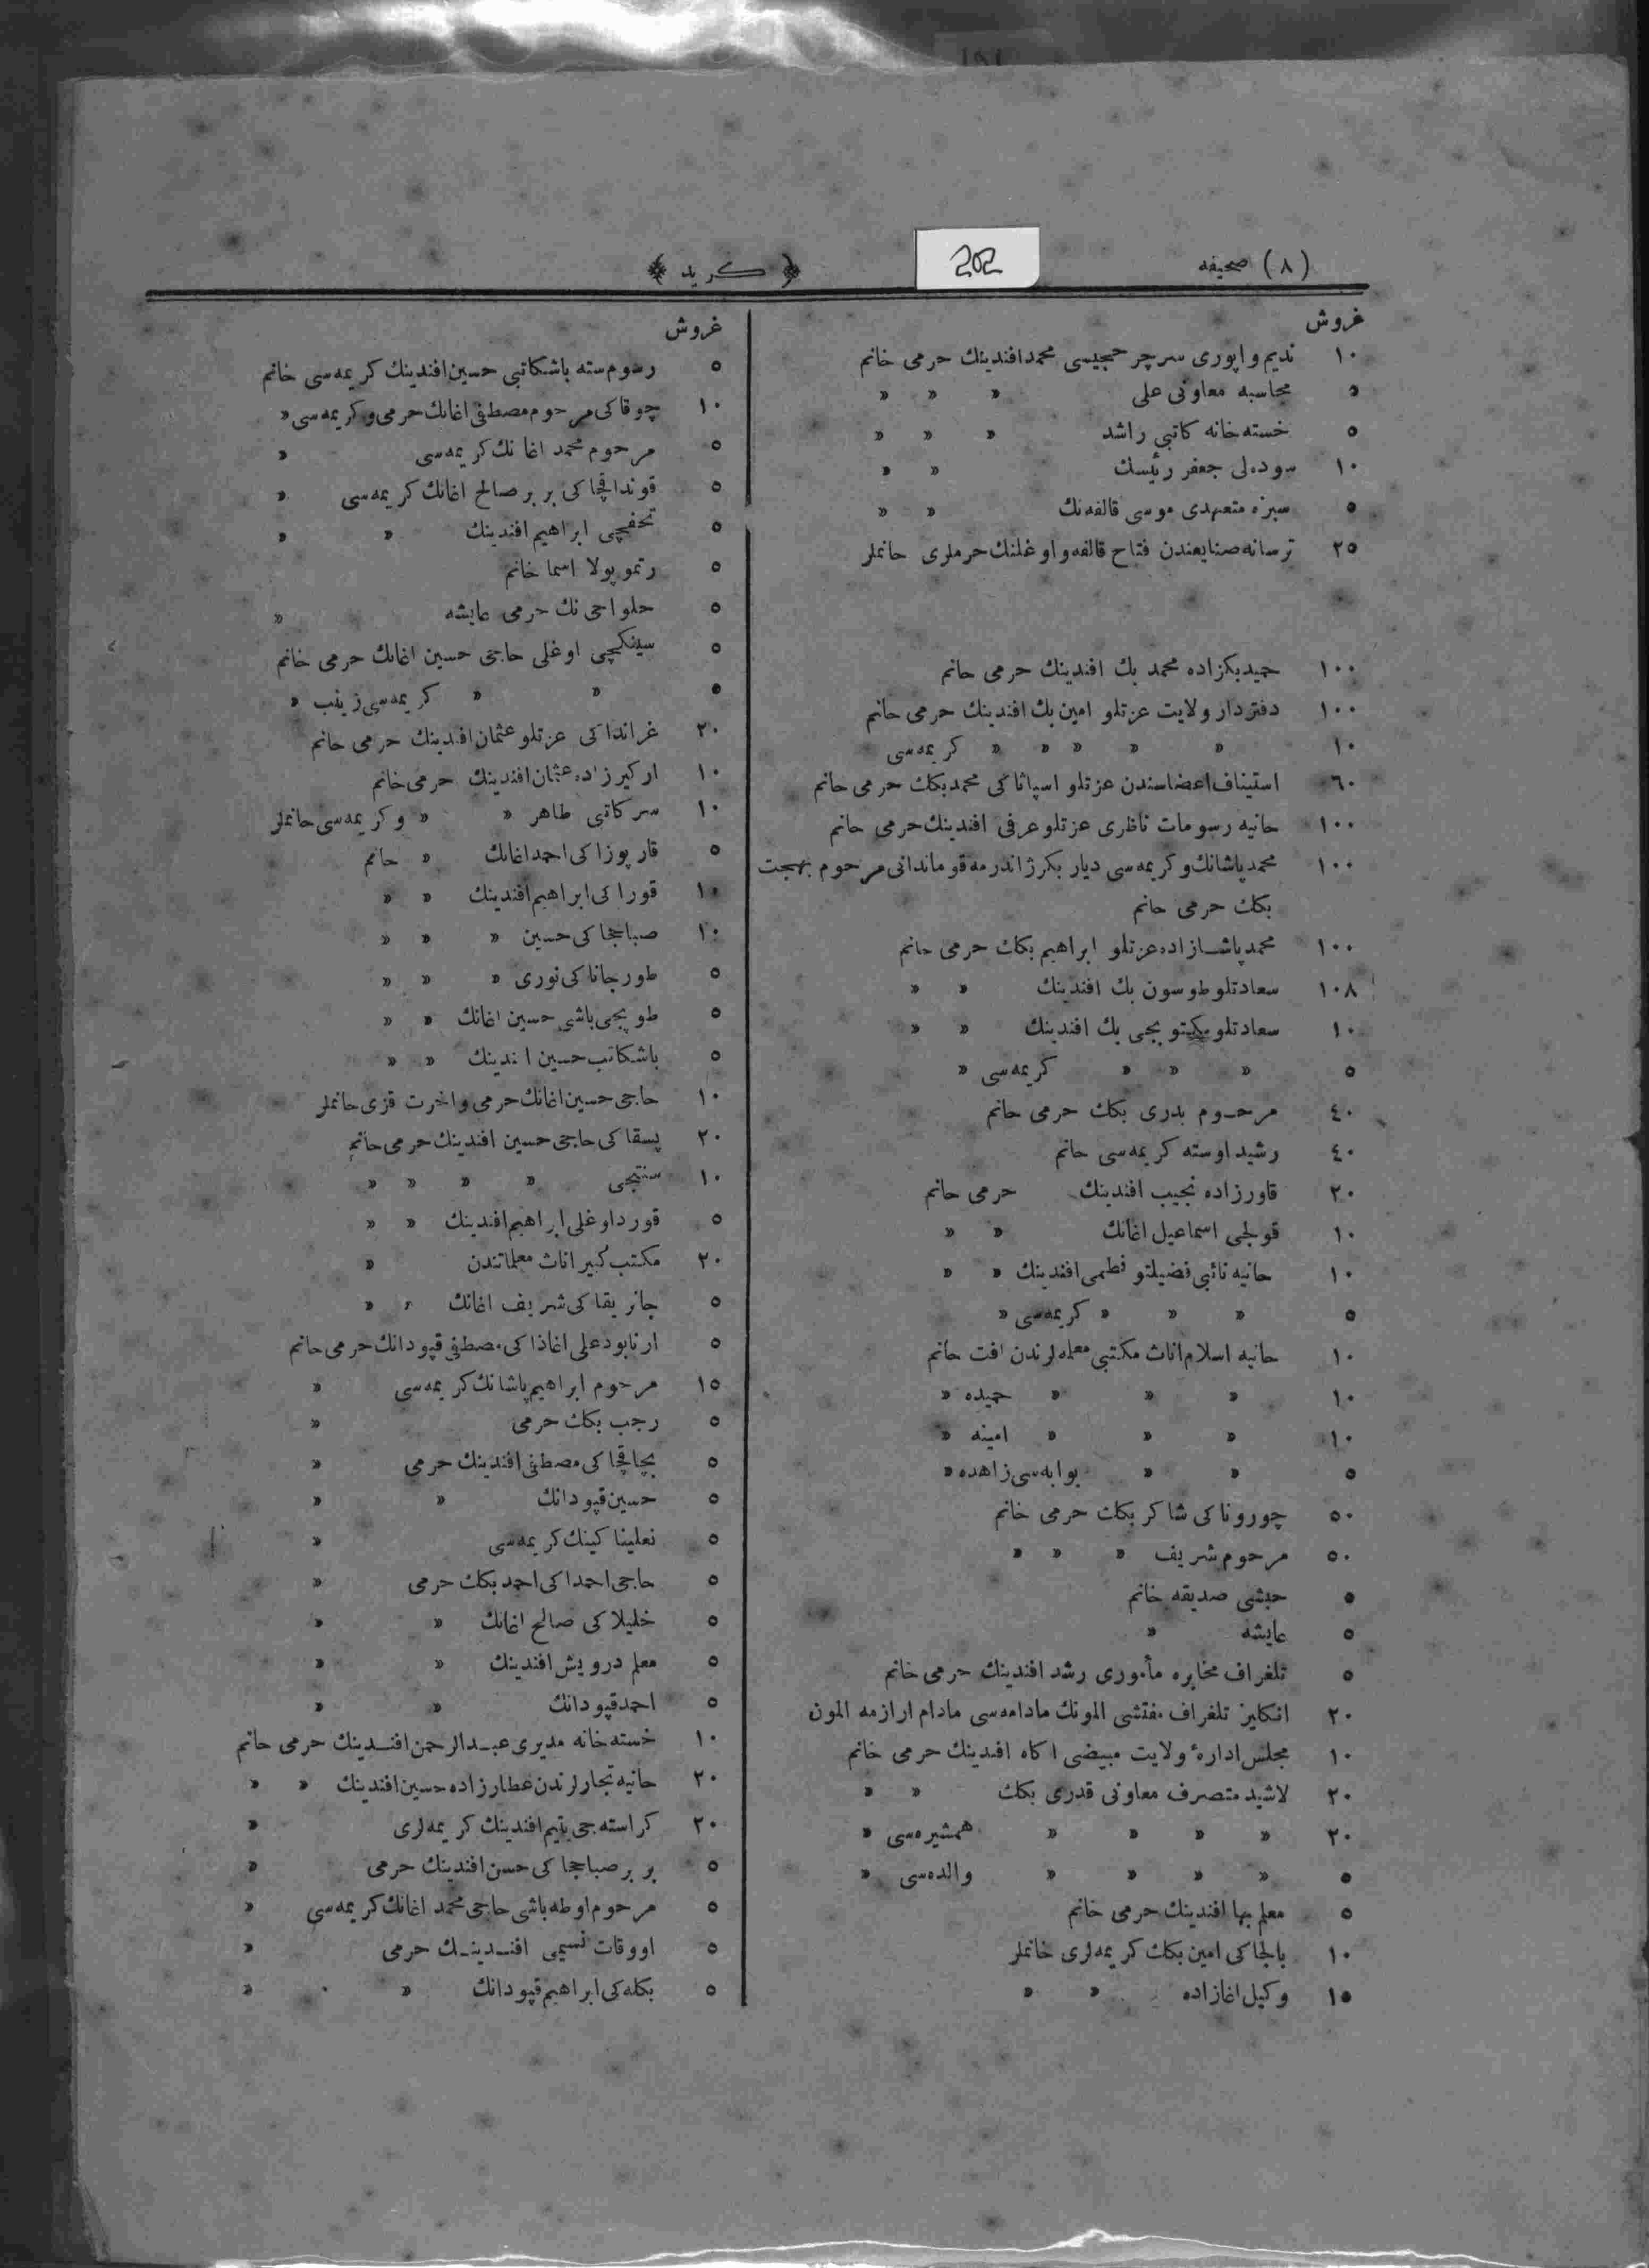 (٨) صحیفه
202
﴿ كريد ﴾
غروش
١٠ نديم واپوری سرچرخجيسی محمد افندينك حرمی خانم
٥ محاسبه معاونی علی » » »
٥ خسته خانه كاتبی راشد » » »
١٠ سوده لی جعفر رئيسك » »
٥ سبزه متعهدی موسی قالفه نك » »
٢٥ ترسانه صنايعندن فتاح قالفه و اوغلنك حرملری خانملر
١٠٠ حميدبكزاده محمد بك افندينك حرمی خانم
١٠٠ دفتردار ولايت عزتلو امين بك افندينك حرمی خانم
١٠ » » » » » كريمه سی
٦٠ استيناف اعضاسندن عزتلو اسپاناكی محمد بكك حرمی خانم
١٠٠ حانيه رسومات ناظری عزتلو عرفی افندينك حرمی خانم
١٠٠ محمد پاشانك وكريمه سی ديار بكر ژاندرمه قوماندانی مرحوم بهجت
بكك حرمی خانم
١٠٠ محمد پاشازاده عزتلو ابراهيم بكك حرمی خانم
١٠٨ سعادتلو طوسون بك افندينك » »
١٠ سعادتلو بك افندينك » »
٥ » » » كريمه سی »
٤٠ مرحوم بدری بكك حرمی خانم
٤٠ رشيد اوسته كريمه سی خانم
٢٠ قاورزاده نجيب افندينك حرمی خانم
١٠ قولجی اسماعيل اغانك » »
١٠ حانيه نائبی فضيلتلو فطمی افندينك » »
٥ » » » كريمه سی »
١٠ حانيه اسلام اناث مكتبی معلمه لرندن افت خانم
١٠ » » » حميده »
١٠ » » » امينه »
٥ » » بوابه سی زاهده »
٥٠ چوروناكی شاكر بكك حرمی خانم
٥٠ مرحوم شريف » » »
٥ حبشی صديقه خانم
٥ عايشه »
٥ تلغراف مخابره مأموری رشد افندينك حرمی خانم
٢٠ انكليز تلغراف مفتشی المونك مادامه سی مادام ارازمه المون
١٠ مجلس ادارهٔ ولايت مبيضی اكاه افندينك حرمی خانم
٢٠ لاشيد متصرف معاونی قدری بكك » »
٢٠ » » » » همشيره سی »
٥ » » » » والده سی »
٥ معلم بها افندينك حرمی خانم
١٠ بالجاكی امين بكك كريمه لری خانملر
١٥ وكيل اغازاده » »
غروش
٥ رسوم سته باشكاتبی حسين افندينك كريمه سی خانم
١٠ چوقاكی مرحوم مصطفی اغانك حرمی وكريمه سی »
٥ مرحوم محمد اغانك كريمه سی »
٥ قونداقجاكی بربر صالح اغانك كريمه سی »
٥ تحفجی ابراهيم افندينك » »
٥ رتموپولا اسما خانم
٥ حلواجی نك حرمی عايشه »
٥ سيفكجی اوغلی حاجی حسين اغانك حرمی خانم
٥ » » كريمه سی زينب »
٢٠ غرانداكی عزتلو عثمان افندينك حرمی خانم
١٠ اركيرزاده عثمان افندينك حرمی خانم
١٠ سركاتبی طاهر » » وكريمه سی خانملر
٥ قارپوزاكی احمد اغانك » خانم
١٠ قوراكی ابراهيم افندينك » »
١٠ صباججاكی حسين » » »
٥ طورجاناكی نوری » » »
٥ طوپجی باشی حسين اغانك » »
٥ باشكاتب حسين افندينك » »
١٠ حاجی حسين اغانك حرمی واخرت قزی خانملر
٢٠ پسقاكی حاجی حسين افندينك حرمی خانم
١٠ سنتجی » » » »
٥ قورداوغلی ابراهيم افندينك » »
٢٠ مكتب كبير اناث معلماتندن »
٥ جانريقاكی شريف اغانك » »
٥ ارنابودعلی اغاذاكی مصطفی قپودانك حرمی خانم
١٥ مرحوم ابراهيم پاشانك كريمه سی »
٥ رجب بكك حرمی »
٥ بچاقجاكی مصطفی افندينك حرمی »
٥ حسين قپودانك » »
٥ نعليناكينك كريمه سی »
٥ حاجی احمداكی احمد بكك حرمی »
٥ خليلاكی صالح اغانك » »
٥ معلم درويش افندينك » »
٥ احمد قپودانك » »
١٠ خسته خانه مديری عبدالرحمن افندينك حرمی خانم
٢٠ حانيه تجارلرندن عطارزاده حسين افندينك » »
٢٠ كراسته جی يتيم افندينك كريمه لری »
٥ بربر صباججاكی حسن افندينك حرمی »
٥ مرحوم اوطه باشی حاجی محمد اغانك كريمه سی »
٥ اووقات نسيمی افندينك حرمی »
٥ بكله كی ابراهيم قپودانك » »